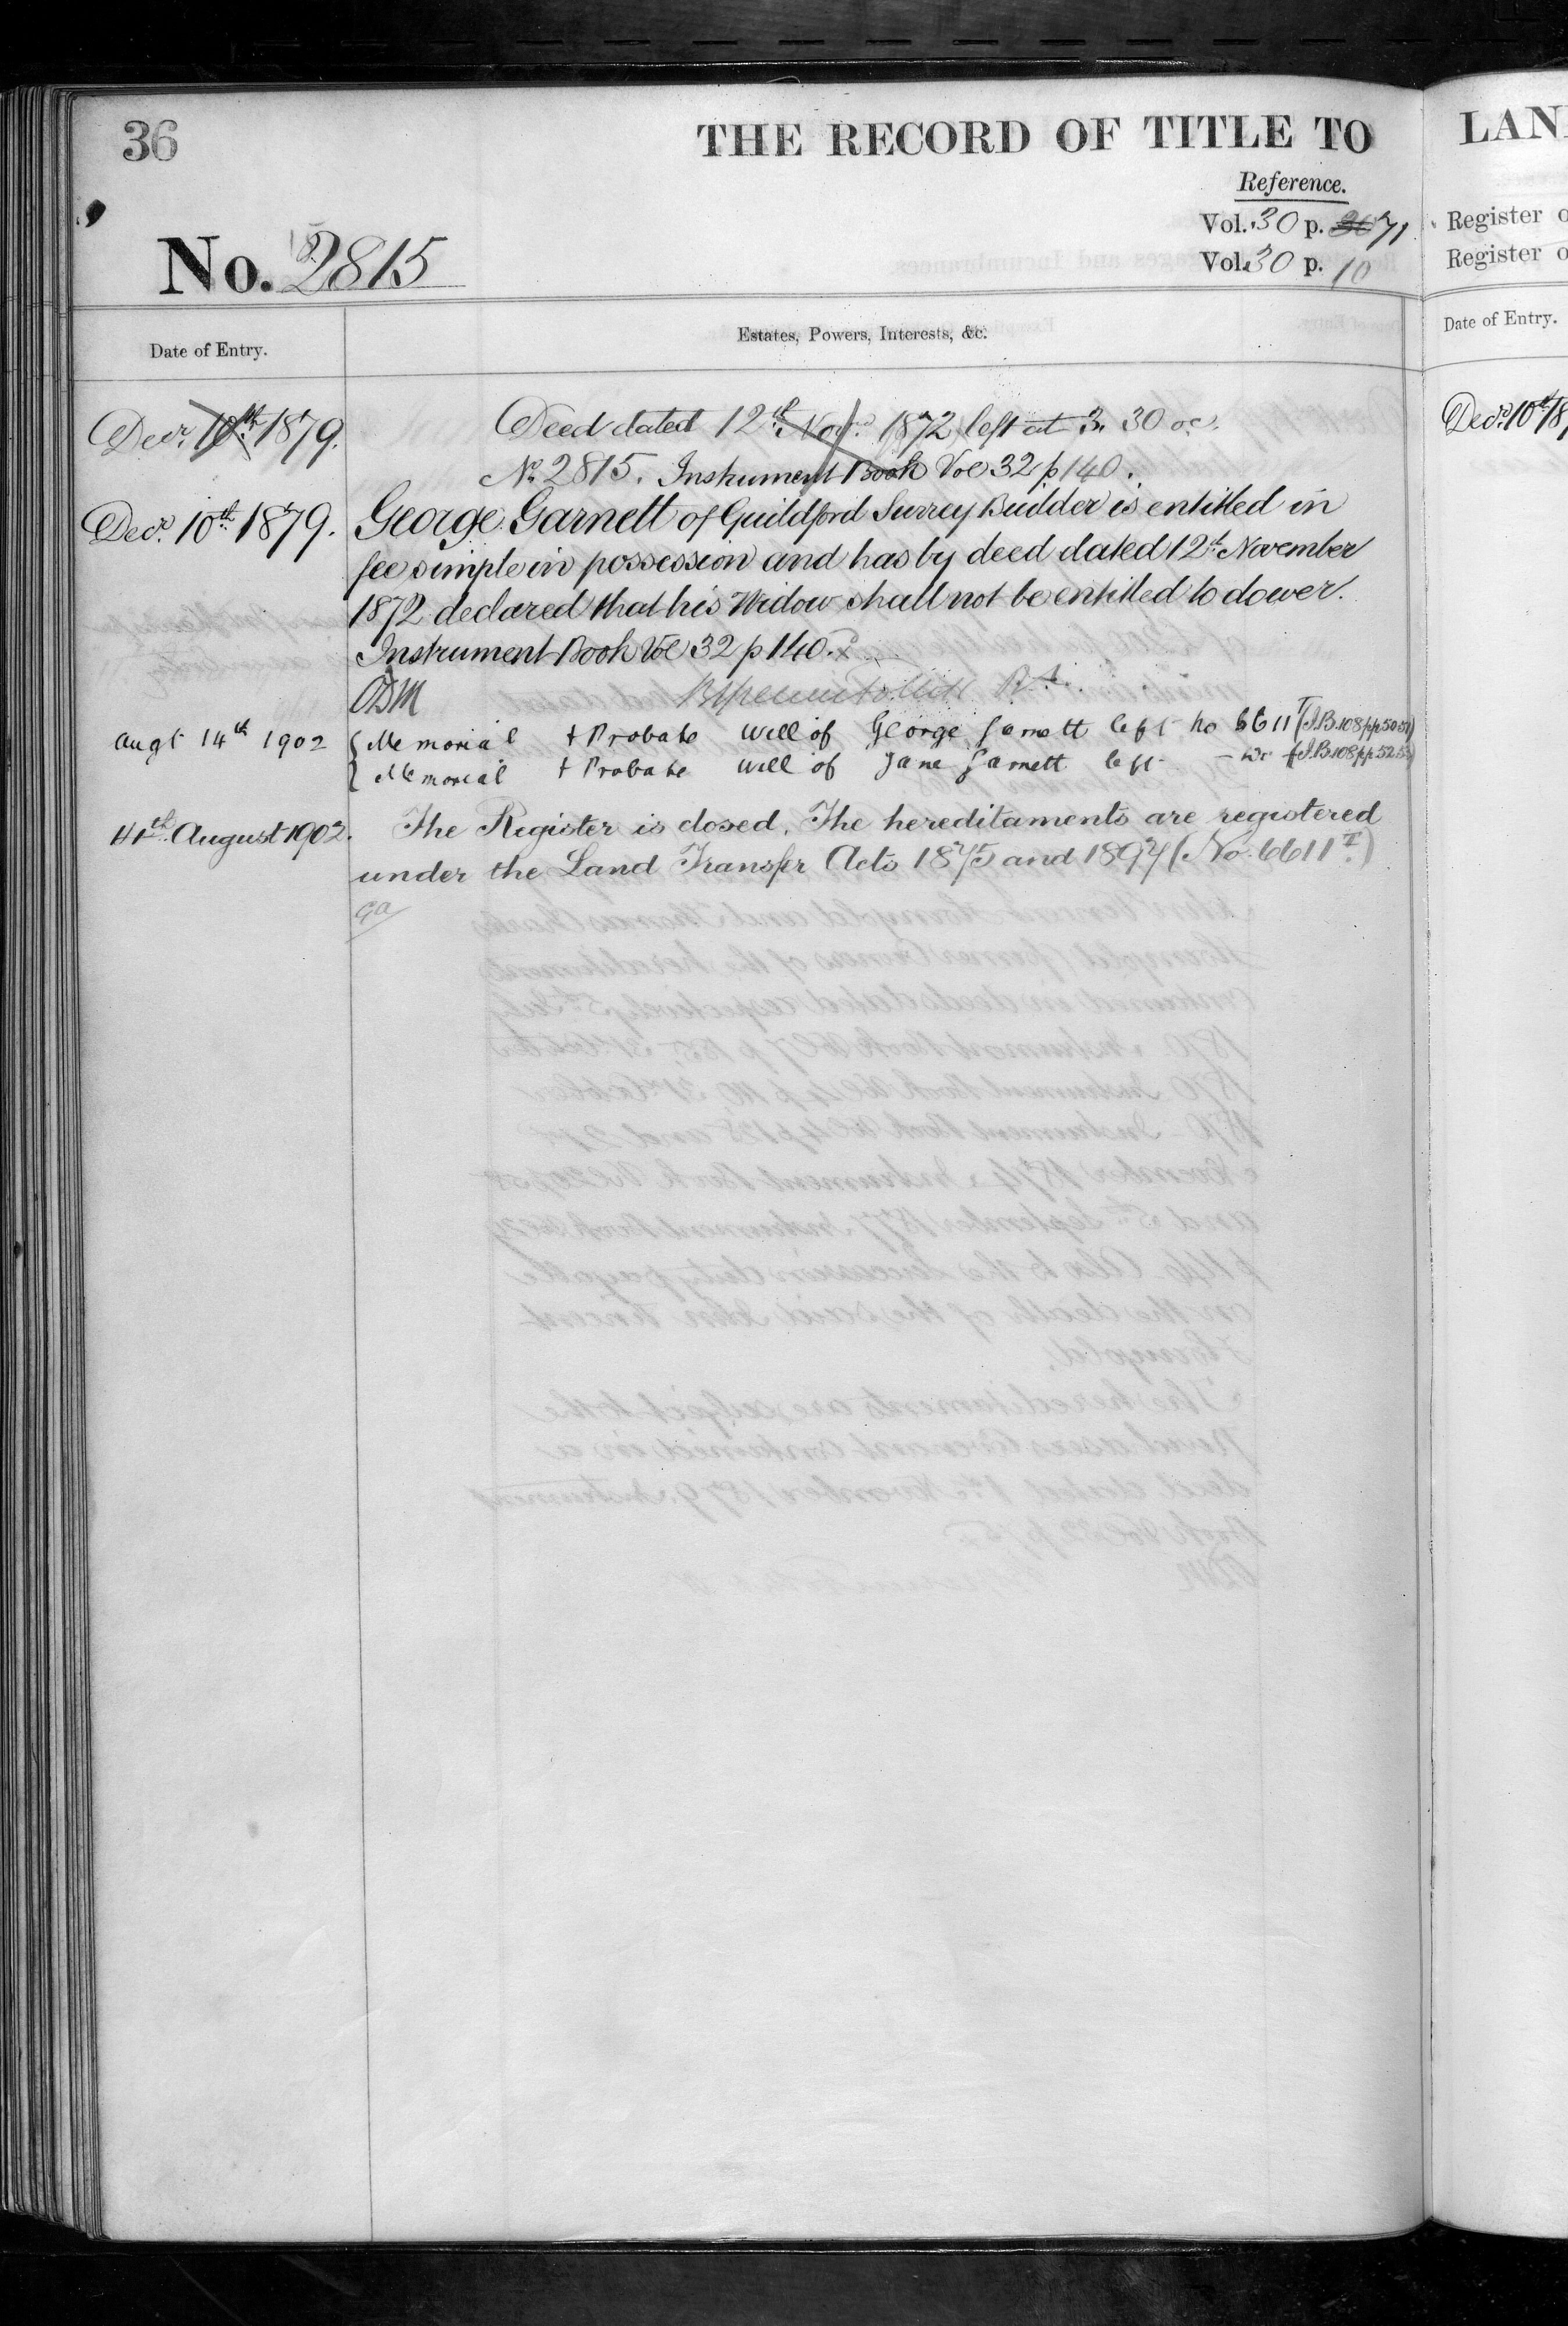 36
THE RECORD OF TITLE TO
Reference.
Vol. 30 p. 36 71
Vol. 30 p. 10
No. 2815
Date of Entry.
Estates, Powers, Interests, &c.
Decr. 10th 1879.
Deed dated 12th Novr. 1872 left at 3. 30 oc.
No. 2815. Instrument Book Vol 32 p 140.
Decr. 10th 1879.
George Garnett of Guildford Surrey Builder is entitled in
fee simple in possession and has by deed dated 12th November
1872 declared that his Widow shall not be entitled to dower.
Instrument Book Vol 32 p 140.
ODM
Augt 14th 1902
Memorial + Probate Will of George Garnett left No 6611T (I.B.108 pp 50 51)
Memorial + Probate Will of Jane Garnett left (I.B.108 pp 52 53)
August 1902.
The Register is closed. The hereditaments are registered
under the Land Transfer Acts 1875 and 1897 (No. 6611T.)
LAN
Register o
Register o
Date of Entry.
Decr. 10th 187